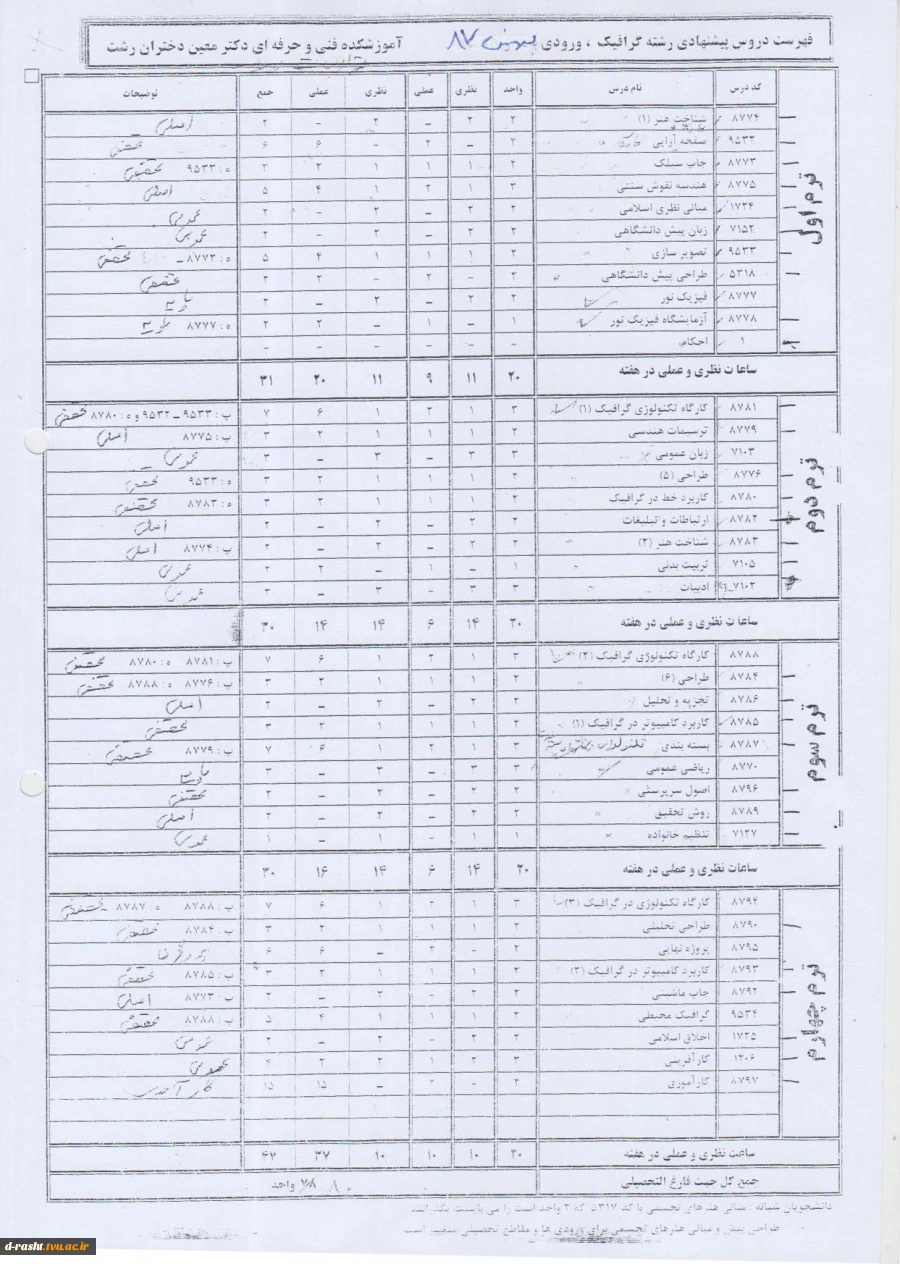 فهرست دروس پیشنهادی رشته گرافیک ، ورودی بهمن ۸۷ آموزشکده فنی و حرفه ای دکتر معین دختران رشت
کد درس نام درس واحد نظری عملی نظری عملی جمع توضیحات
ترم اول
۸۷۷۴ شناخت هنر (۱) ۲ ۲ – ۲ – ۲ اصلی
۹۵۳۲ صفحه آرایی ۲ – ۲ – ۶ ۶ تخصصی
۸۷۷۳ چاپ سیلک ۲ ۱ ۱ ۱ ۲ ۳ ه : ۹۵۳۳ تخصصی
۸۷۷۵ هندسه نقوش سنتی ۳ ۱ ۲ ۱ ۴ ۵ اصلی
۱۷۲۴ مبانی نظری اسلامی ۲ ۲ – ۲ – ۲ عمومی
۷۱۵۲ زبان پیش دانشگاهی ۲ ۲ – ۲ – ۲ عمومی
۹۵۳۳ تصویر سازی ۲ ۱ ۱ ۱ ۴ ۵ ه : ۸۷۷۳ – تخصصی
۵۳۱۸ طراحی پیش دانشگاهی ۲ – ۲ – ۲ ۲ تخصصی
۸۷۷۷ فیزیک نور ۲ ۲ – ۲ – ۲ پایه
۸۷۷۸ آزمایشگاه فیزیک نور ۱ – ۱ – ۲ ۲ ه : ۸۷۷۷ پایه
۱ احکام – – – – – –
ساعات نظری و عملی در هفته ۲۰ ۱۱ ۹ ۱۱ ۲۰ ۳۱
ترم دوم
۸۷۸۱ کارگاه تکنولوژی گرافیک (۱) ۳ ۱ ۲ ۱ ۶ ۷ پ : ۹۵۳۳ – ۹۵۳۲ و ه : ۸۷۸۰ تخصصی
۸۷۷۹ ترسیمات هندسی ۲ ۱ ۱ ۱ ۲ ۳ پ : ۸۷۷۵ اصلی
۷۱۰۳ زبان عمومی ۳ ۳ – ۳ – ۳ عمومی
۸۷۷۶ طراحی (۵) ۲ ۱ ۱ ۱ ۲ ۳ ه : ۹۵۳۳ تخصصی
۸۷۸۰ کاربرد خط در گرافیک ۲ ۱ ۱ ۱ ۲ ۳ ه : ۸۷۸۳ تخصصی
۸۷۸۲ ارتباطات و تبلیغات ۲ ۲ – ۲ – ۲ اصلی
۸۷۸۳ شناخت هنر (۲) ۲ ۲ – ۲ – ۲ پ : ۸۷۷۴ اصلی
۷۱۰۵ تربیت بدنی ۱ – ۱ – ۲ ۲ عمومی
۷۱۰۲ ادبیات ۳ ۳ – ۳ – ۳ عمومی
ساعات نظری و عملی در هفته ۲۰ ۱۴ ۶ ۱۴ ۱۶ ۳۰
ترم سوم
۸۷۸۸ کارگاه تکنولوژی گرافیک (۲) ۳ ۱ ۲ ۱ ۶ ۷ پ : ۸۷۸۱ ه : ۸۷۸۰ تخصصی
۸۷۸۴ طراحی (۶) ۲ ۱ ۱ ۱ ۲ ۳ پ : ۸۷۷۶ ه : ۸۷۸۸ تخصصی
۸۷۸۶ تجزیه و تحلیل ۲ ۲ – ۲ – ۲ اصلی
۸۷۸۵ کاربرد کامپیوتر در گرافیک (۱) ۲ ۱ ۱ ۱ ۲ ۳ تخصصی
۸۷۸۷ بسته بندی ۳ ۱ ۲ ۱ ۶ ۷ پ : ۸۷۷۹ تخصصی
۸۷۷۰ ریاضی عمومی ۳ ۳ – ۳ – ۳ پایه
۸۷۹۶ اصول سرپرستی ۲ ۲ – ۲ – ۲ تخصصی
۸۷۸۹ روش تحقیق ۲ ۲ – ۲ – ۲ اصلی
۷۱۲۷ تنظیم خانواده ۱ ۱ – ۱ – ۱ عمومی
ساعات نظری و عملی در هفته ۲۰ ۱۴ ۶ ۱۴ ۱۶ ۳۰
ترم چهارم
۸۷۹۴ کارگاه تکنولوژی در گرافیک (۳) ۳ ۱ ۲ ۱ ۶ ۷ پ : ۸۷۸۸ ه : ۸۷۸۷ تخصصی
۸۷۹۰ طراحی تحلیلی ۲ ۱ ۱ ۱ ۲ ۳ پ : ۸۷۸۴ تخصصی
۸۷۹۵ پروژه نهایی ۲ – ۲ – ۶ ۶
۸۷۹۳ کاربرد کامپیوتر در گرافیک (۲) ۲ ۱ ۱ ۱ ۲ ۳ پ : ۸۷۸۵ تخصصی
۸۷۹۲ چاپ ماشینی ۲ ۲ – ۲ – ۲ پ : ۸۷۷۳ اصلی
۹۵۳۴ گرافیک محیطی ۲ ۱ ۱ ۱ ۴ ۵ پ : ۸۷۸۸ تخصصی
۱۷۲۵ اخلاق اسلامی ۲ ۲ – ۲ – ۲ عمومی
۱۲۰۶ کارآفرینی ۳ ۲ ۱ ۲ ۲ ۴ عمومی
۸۷۹۷ کارآموزی ۲ – ۲ – ۱۵ ۱۵ کارآموزی
ساعت نظری و عملی در هفته ۲۰ ۱۰ ۱۰ ۱۰ ۳۷ ۴۷
جمع کل جهت فارغ التحصیلی ۸۰ واحد
دانشجویان شبانه : مبانی هنرهای تجسمی با کد ۵۳۱۷ که ۲ واحد است را می بایست بگذرانند
طراحی پیش و مبانی هنرهای تجسمی برای ورودی ها و مقاطع تحصیلی متغیر است
d-rasht.tvu.ac.ir